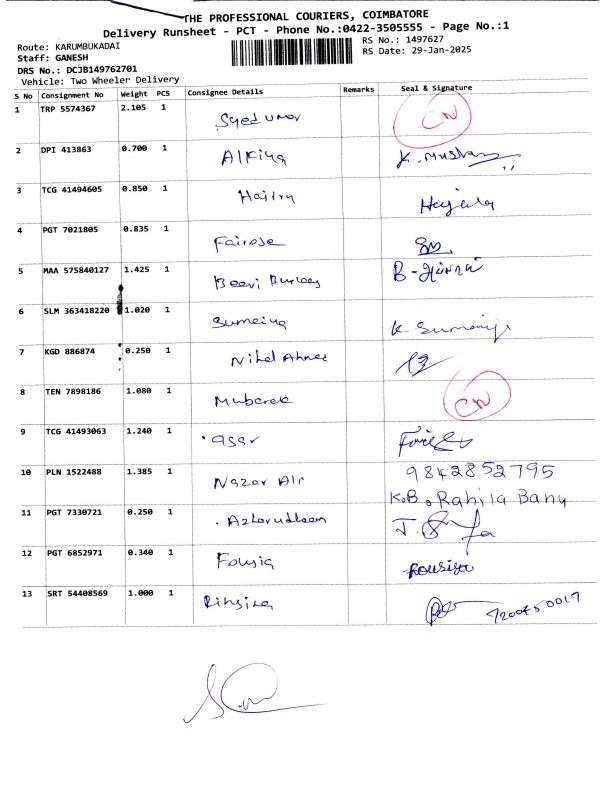 THE PROFESSIONAL COURIERS, COIMBATORE
Delivery Runsheet - PCT - Phone No.:0422-3505555 - Page No.:1
Route: KARUMBUKADAI
RS No.: 1497627
Staff: GANESH
RS Date: 29-Jan-2025
DRS No.: DCJB149762701
Vehicle: Two Wheeler Delivery
S No Consignment No Weight PCS Consignee Details Remarks Seal & Signature
1 TRP 5574367 2.105 1 Syed umar CN
2 DPI 413863 0.700 1 Alfiya K. Mustan
3 TCG 41494605 0.850 1
4 PGT 7021805 0.835 1 Fairose
5 MAA 575840127 1.425 1 Beevi
6 SLM 363418220 1.020 1 Sumeiya K
7 KGD 886874 0.250 1 Nihal Ahmed
8 TEN 7898186 1.080 1 Mubarak CN
9 TCG 41493063 1.240 1
10 PLN 1522488 1.385 1 Nazar Ali 9842852795
K.B. Rahila Banu
11 PGT 7330721 0.250 1 Azharudheen
12 PGT 6852971 0.340 1 Fousia Rousiya
13 SRT 54408569 1.000 1 7200450017